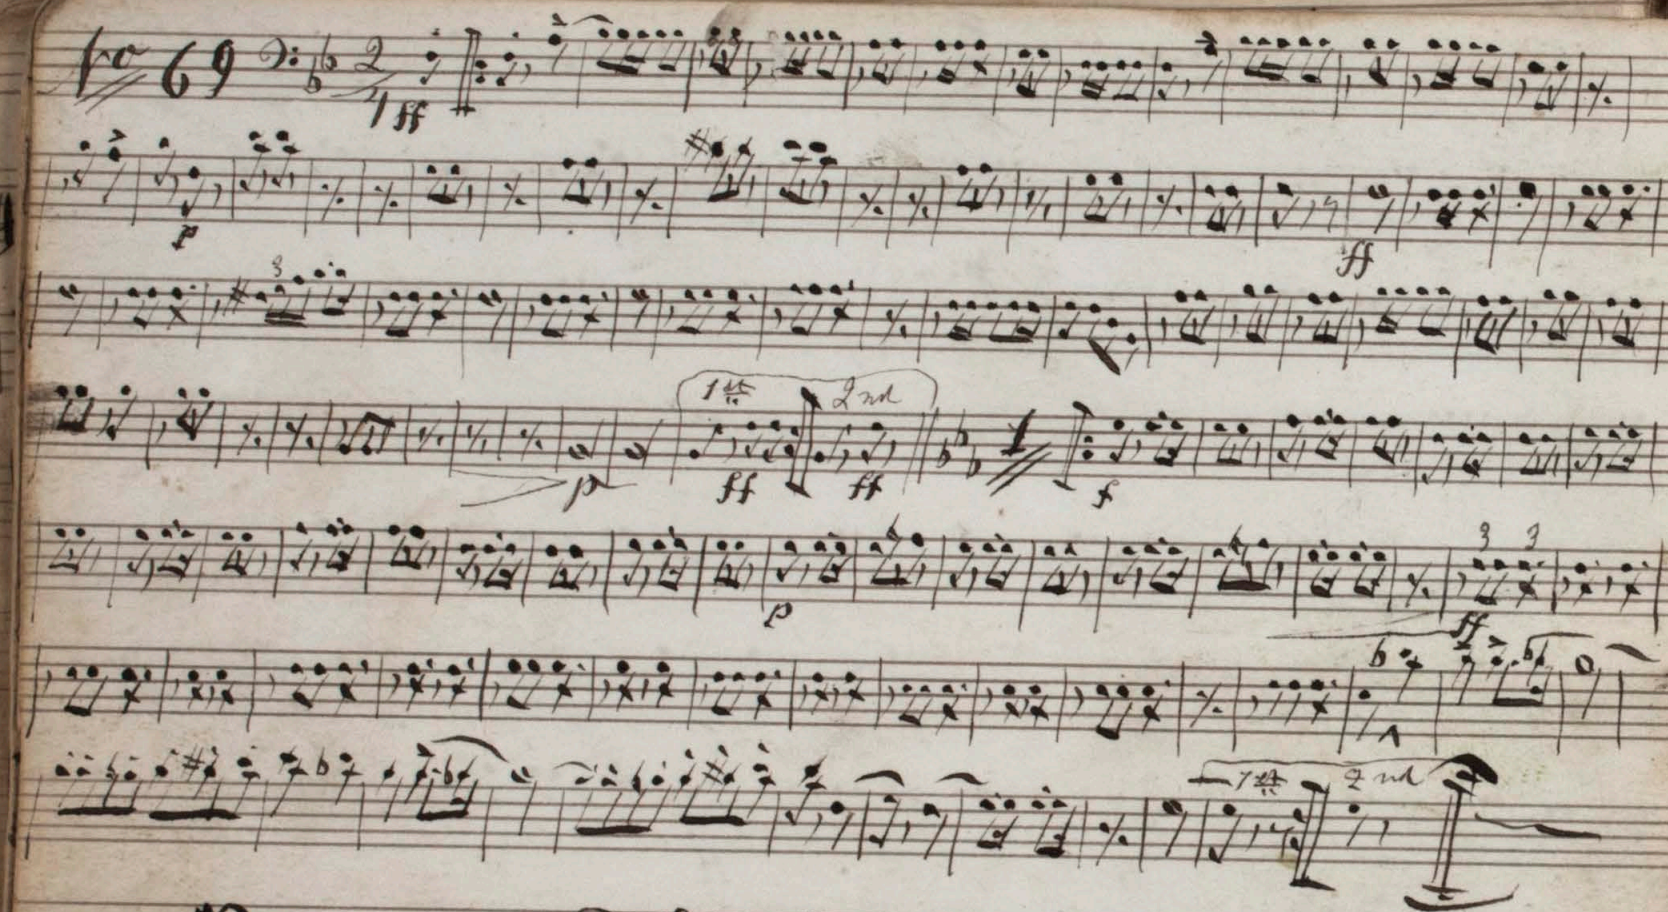 No 69 2
4 ff
p ff
3
1st 2nd
p ff ff f
3 3
p ff
1st 2nd